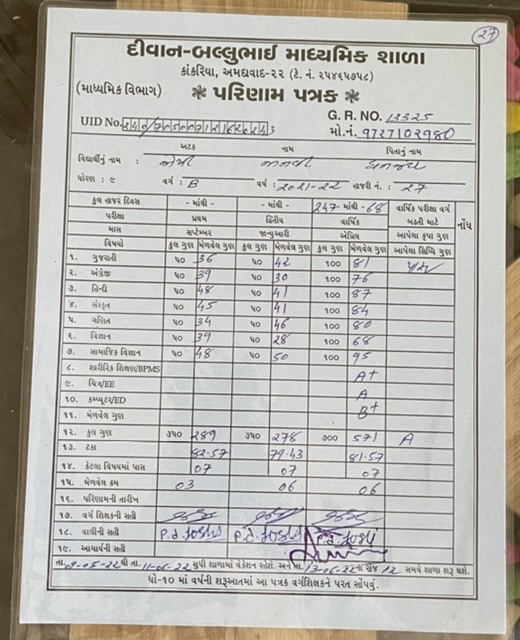 27
દીવાન-બલ્લુભાઈ માધ્યમિક શાળા
કાંકરિયા, અમદાવાદ-૨૨ (ટે. નં. ૨૫૪૬૫૭૫૮)
(માધ્યમિક વિભાગ) * પરિણામ પત્રક *
UID No. G. R. NO. 13325
મો.નં. 9727102980
અટક નામ પિતાનું નામ
વિદ્યાર્થીનું નામ : જોષી
ધોરણ : ૯ વર્ગ : B વર્ષ : 2021-22 હાજરી નં. : 27
કુલ હાજર દિવસ - માંથી - - માંથી - 247 - માંથી - 68 વાર્ષિક પરીક્ષા વર્ગ બઢતી માટે નોંધ
પરીક્ષા પ્રથમ દ્વિતીય વાર્ષિક
માસ સપ્ટેમ્બર જાન્યુઆરી એપ્રિલ આપેલા કૃપા ગુણ
વિષયો કુલ ગુણ મેળવેલ ગુણ કુલ ગુણ મેળવેલ ગુણ કુલ ગુણ મેળવેલ ગુણ આપેલા સિધ્ધિ ગુણ
૧. ગુજરાતી ૫૦ 36 ૫૦ 42 ૧૦૦ 81
૨. અંગ્રેજી ૫૦ 39 ૫૦ 30 ૧૦૦ 76
૩. હિન્દી ૫૦ 48 ૫૦ 41 ૧૦૦ 87
૪. સંસ્કૃત ૫૦ 45 ૫૦ 41 ૧૦૦ 84
૫. ગણિત ૫૦ 34 ૫૦ 46 ૧૦૦ 80
૬. વિજ્ઞાન ૫૦ 39 ૫૦ 28 ૧૦૦ 68
૭. સામાજિક વિજ્ઞાન ૫૦ 48 ૫૦ 50 ૧૦૦ 95
૮. શારીરિક શિક્ષણ/BPMS A+
૯. ચિત્ર/EE A
૧૦. કમ્પ્યુટર/ED B+
૧૧. મેળવેલ ગુણ
૧૨. કુલ ગુણ ૩૫૦ 289 ૩૫૦ 278 ૭૦૦ 571 A
૧૩. ટકા 82.57 79.43 81.57
૧૪. કેટલા વિષયમાં પાસ 07 07 07
૧૫. મેળવેલ ક્રમ 03 06 06
૧૬. પરિણામની તારીખ
૧૭. વર્ગ શિક્ષકની સહી
૧૮. વાલીની સહી P.J. Joshi P.J. Joshi P.J. Joshi
૧૯. આચાર્યની સહી
તા. 9-05-22 થી તા. 11-06-22 સુધી શાળામાં વેકેશન રહેશે. અને તા. 13-06-22 ના રોજ 12 સમયે શાળા શરૂ થશે.
ધો-૧૦ માં વર્ષની શરૂઆતમાં આ પત્રક વર્ગશિક્ષકને પરત સોંપવું.